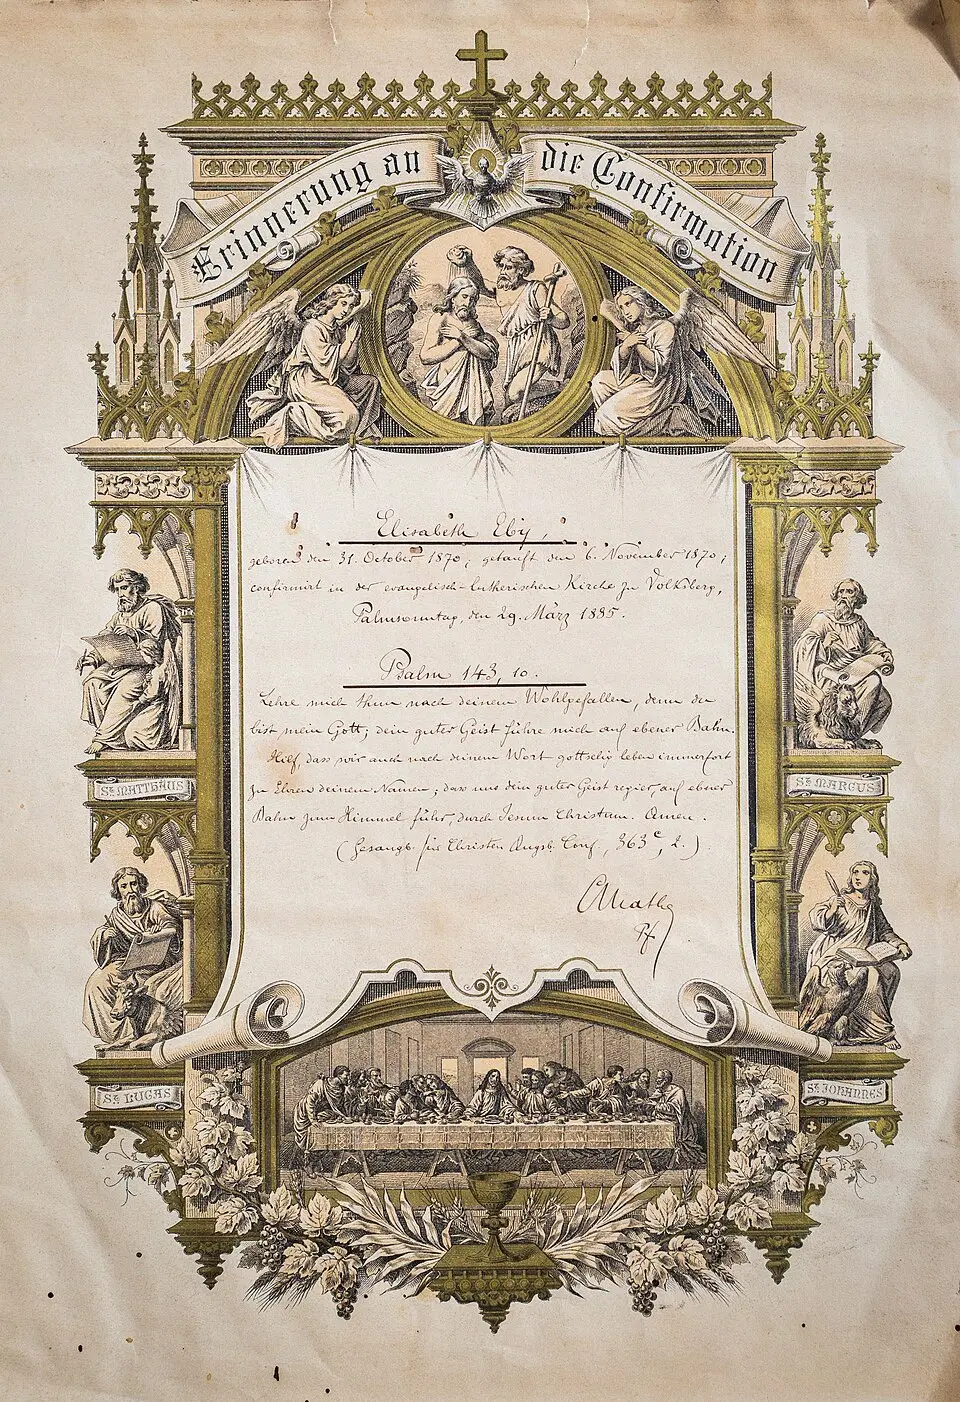 Erinnerung an die Confirmation
Elisabeth Eby,
geboren den 31. October 1870; getauft den 6. November 1870;
confirmirt in der evangelisch-lutherischen Kirche zu Volksberg,
Palmsonntag, den 29. März 1885.
Psalm 143, 10.
Lehre mich thun nach deinem Wohlgefallen, denn du
bist mein Gott; dein guter Geist führe mich auf ebener Bahn.
Hilf, dass wir auch nach deinem Wort gottselig leben immerfort
zu Ehren deinem Namen, dass uns dein guter Geist regier, auf ebner
Bahn zum Himmel führ, durch Jesum Christum. Amen.
(Gesangb. für Christen Augsb. Conf., 363e, 2.)
Pf.
St. MATTHÄUS
St. MARCUS
St. LUCAS
St. JOHANNES